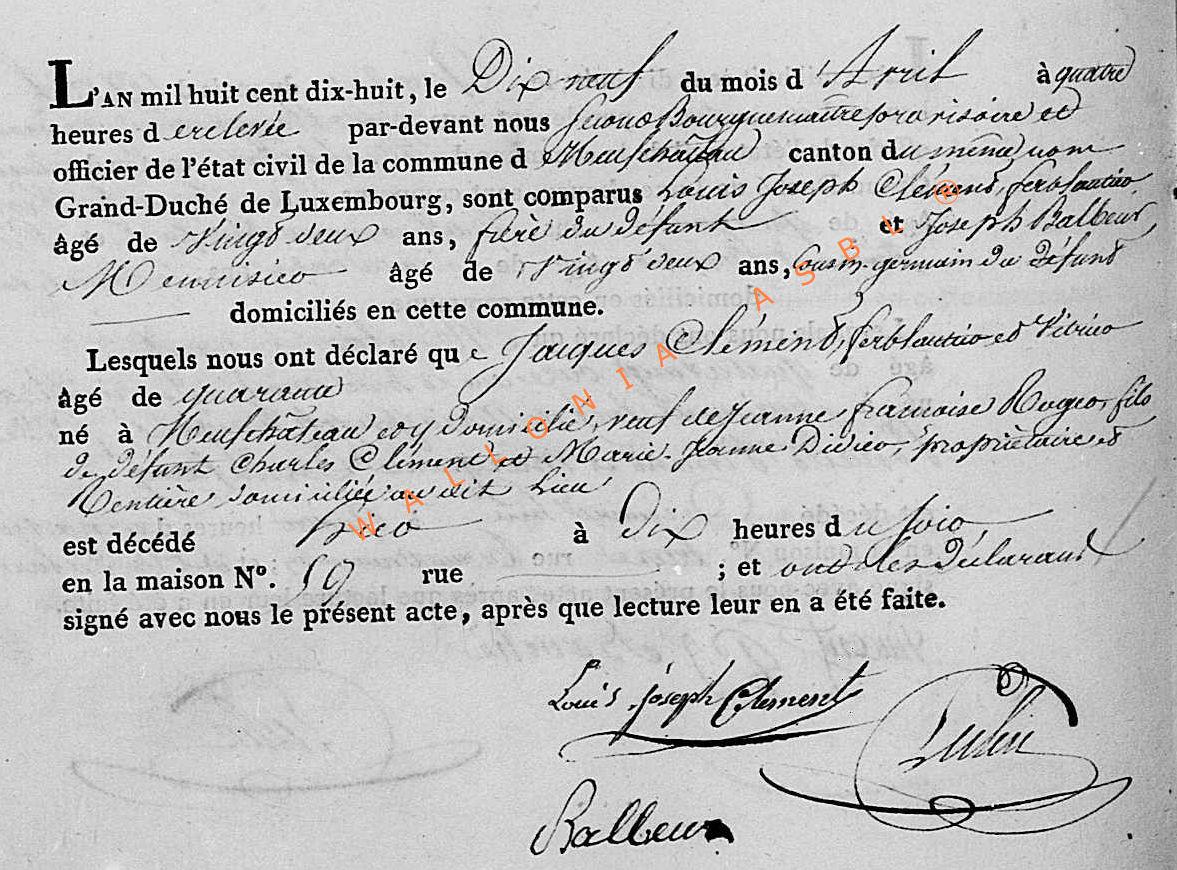 L'AN mil huit cent dix-huit, le Dix neuf du mois d'Avril à quatre
heures d e relevée par-devant nous second Bourguemaitre provisoire et
officier de l'état civil de la commune d e Neufchâteau canton du même nom
Grand-Duché de Luxembourg, sont comparus Louis Joseph Clément, ferblantier
âgé de vingt deux ans, frère du défunt et Joseph Balbeur,
Menuisier âgé de vingt deux ans, cousin germain du défunt
domiciliés en cette commune.
Lesquels nous ont déclaré qu e Jacques Clément, ferblantier et Vitrier
âgé de quarante
né à Neufchâteau et y domicilié, veuf de Jeanne françoise Rogier, fils
de défunt Charles Clément et Marie-Jeanne Didier, propriétaire et
Rentière domiciliée au dit Lieu
est décédé hier à Dix heures du soir,
en la maison Nº. 59 rue ; et ont les Déclarants
signé avec nous le présent acte, après que lecture leur en a été faite.
Louis Joseph Clement
Balbeur
WALLONIA ASBL ®